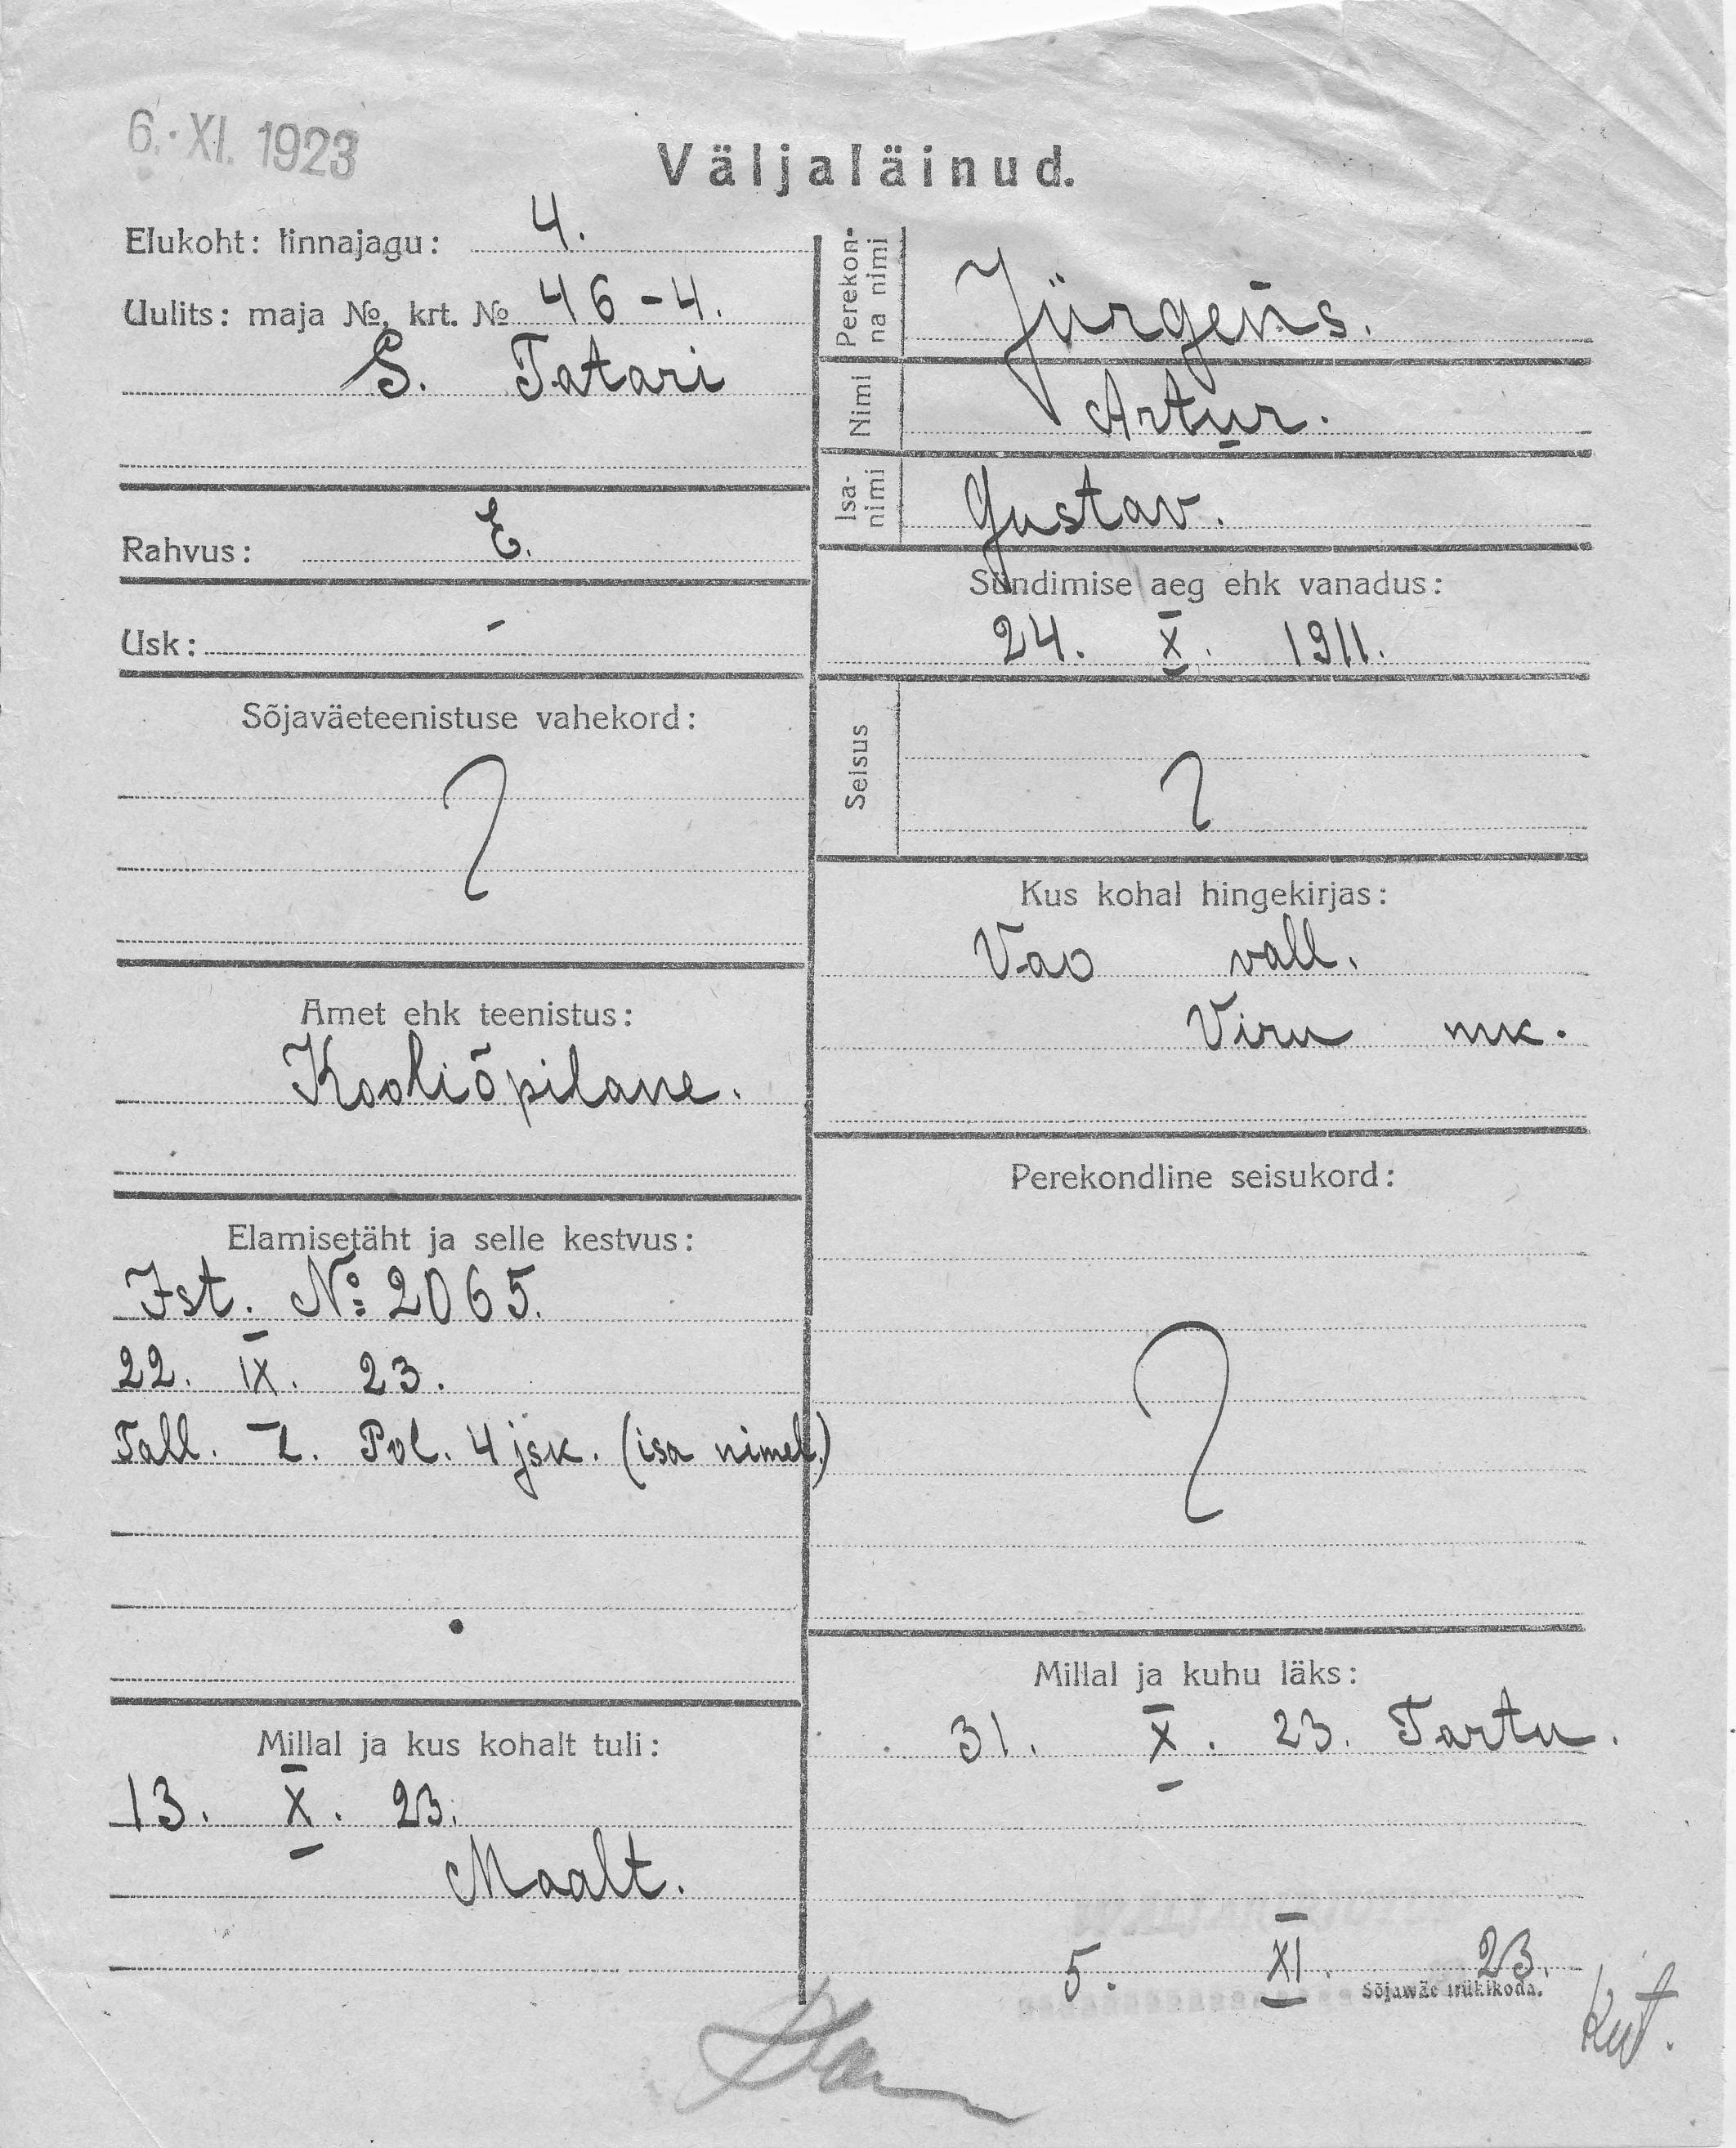 6. XI. 1923
Väljaläinud.
Elukoht: linnajagu: 4.
Uulits: maja №, krt. № 46-4.
S. Tatari
Rahvus: E.
Usk: -
Sõjaväeteenistuse vahekord:
Amet ehk teenistus:
Kooliõpilane.
Elamisetäht ja selle kestvus:
Ist. № 2065.
22. IX. 23.
Tall. L. Pol. 4 jsk. (isa nimel.)
Millal ja kus kohalt tuli:
13. X. 23.
Maalt.
Perekon-
na nimi
Jürgens.
Nimi
Artur.
Isa-
nimi
Gustav.
Sündimise aeg ehk vanadus:
24. X. 1911.
Seisus
Kus kohal hingekirjas:
Vao vall.
Viru mk.
Perekondline seisukord:
Millal ja kuhu läks:
31. X. 23. Tartu.
5. XI. 23.
Sõjawäe trükikoda.